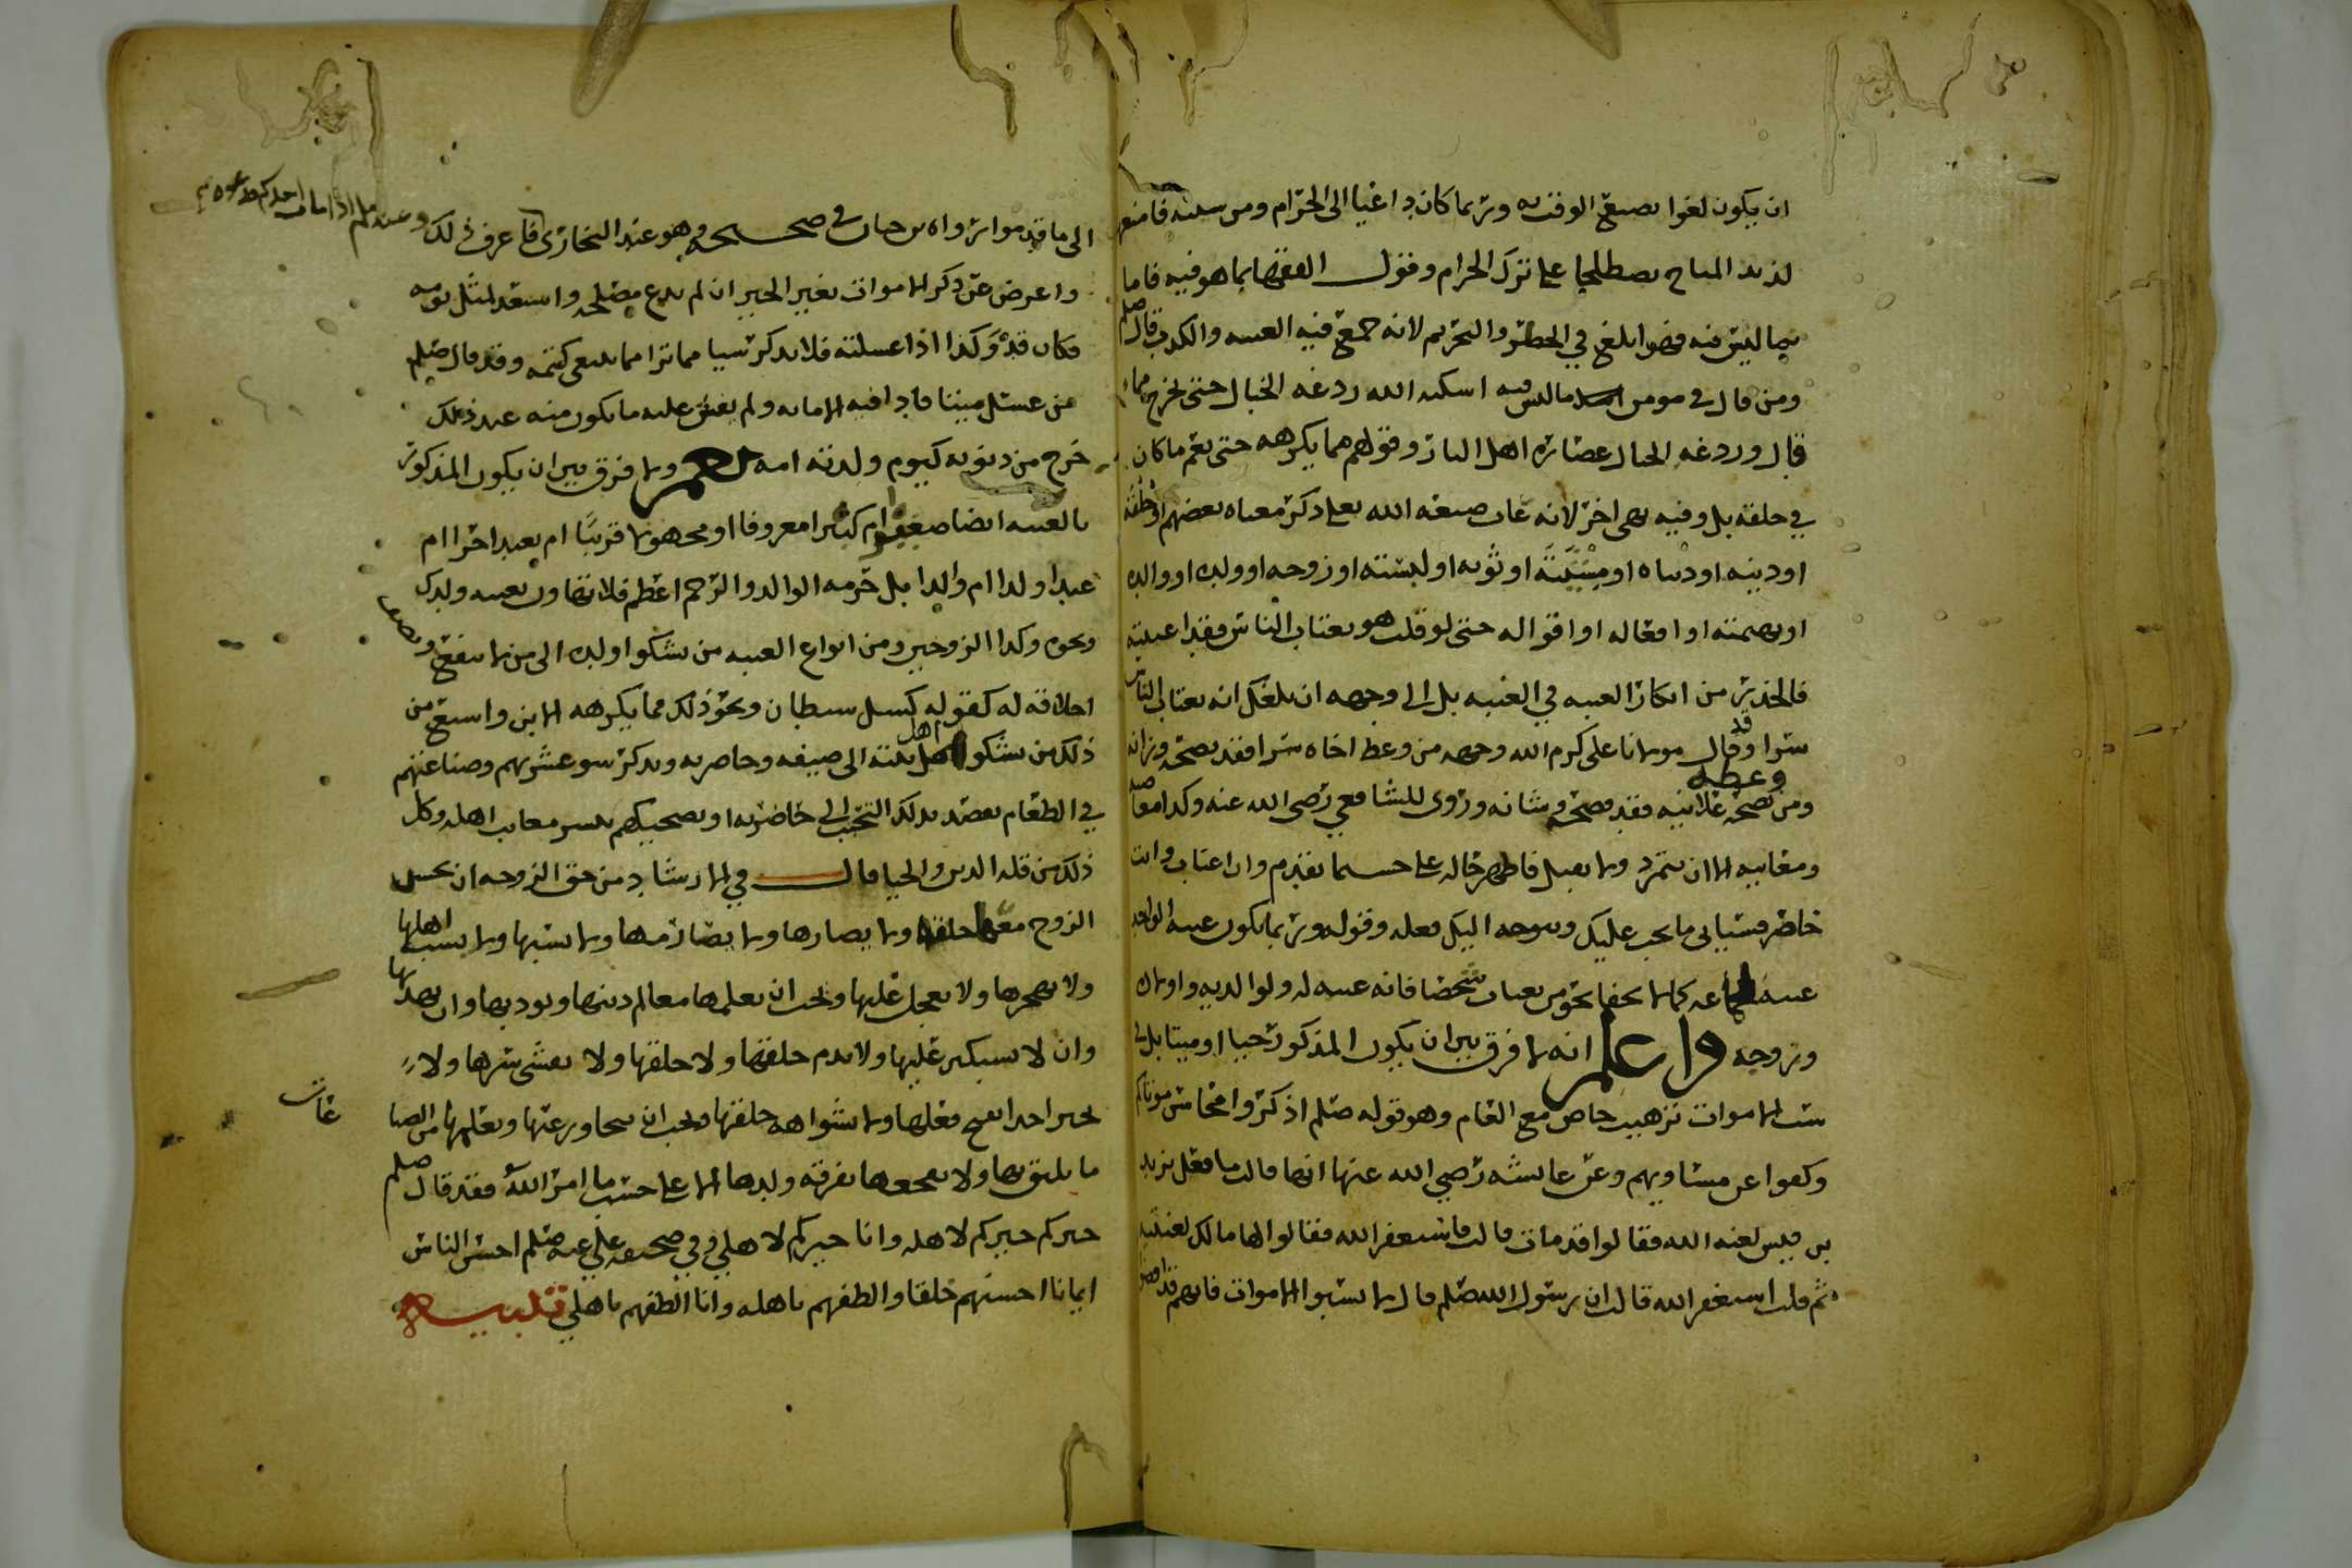 ان يكون لغوا يضيع الوقت به وربما كان داغيا الى الحرام ومن سلنه فامنع
لذيذ المباح يصطلحا على ترك الحرام وقول الفقها بما هو فيه فاما
بما ليس فيه فهو ابلغ في الحظر والتحريم لانه جمع فيه الغيبه والكذب قال صلم
ومن قال في مومن ما ليس فيه اسكنه الله ردغه الخبال حتى يخرج مما
قال وردغه الخبال عصاره اهل النار وقولهم مما يكرهه حتى يعم ما كان
في خلقه بل وفيه نهي اخر لانه عاب صنعه الله تعلى ذكر معناه بعضهم او خلقه
او دينه او دنياه او مشيته او ثوبه او لبسته او زوجه او ولده او والده
او بهمته او افعاله او اقواله حتى لو قلت هو يغتاب الناس فقد اغتبته
فالحذر من انكار الغيبه في الغيبه بل الى وجهه ان بلغك انه يغتاب الناس
سرا وقد قال مولانا على كرم الله وجهه من وعظ اخاه سرا فقد نصحه وزانه
ومن نصحه وعظه علانيه فقد فضحه وشانه وروى للشافعي رضي الله عنه وكذا
ومعاتبه الا ان يتمرد ولا يقبل فاظهر حاله على حسب ما تقدم وان اغتاب وانت
حاضر فسياتى ما يجب عليك ويتوجه اليك فعله وقوله وربما يكون غيبه الواحد
غيبه لجماعه كما لا يخفا نحو من يعياب شخصا فانه غيبه له ولوالديه واولاده
وزوجه واعلم انه لا فرق بين ان يكون المذكور حيا او ميتا بل في
سب الاموات ترهيب خاص مع العام وهو قوله صلم اذكروا محاسن موتاكم
وكفوا عن مساويهم وعن عايشه رضي الله عنها انها قالت ما فعل يزيد
بن قيس لعنه الله فقالوا قد مات قالت فاستغفر الله فقالوا لها مالك لعنتيه
ثم قلت استغفر الله قالت ان رسول الله صلم قال لا تسبوا الاموات فانهم قد افضوا
الى ما قدموا رواه بن حبان في صحيحه وهو عند البخارى فاعرف ذلك وعنه صلم اذا مات احدكم
واعرض عن ذكر الاموات بغير الخير ان لم تدع مصلحه واستعد لمثل يومه
فكان قد وكذا اذا غسلته فلا تذكر شيا مما ترا مما ينبغى كتمه وقد قال صلم
من غسل ميتا فادا فيه الامانه ولم يفش عليه ما يكون منه عند ذلك
خرج من ذنوبه كيوم ولدته امه نعم ولا فرق بين ان يكون المذكور
بالغيبه ايضا صغيرا ام كبيرا معروفا او مجهولا قريبا ام بعيدا حرا ام
عبدا ولدا ام والدا بل حرمه الوالد والرحم اعظم فلا تتهاون بغيبه ولدك
ونحوه وكذا الزوجين ومن انواع الغيبه من يشكوا ولده الى من لا ينفع ويصف
اخلاقه له كقوله كسل سيطان ونحو ذلك مما يكرهه الابن واسنع من
ذلك من يشكوا اهل بيته الى ضيفه وحاضريه ويذكر سو عشرتهم وصناعتهم
في الطعام يقصد بذلك التحبب الى حاضريه او يضحيكهم بنشر معايب اهله وكل
ذلك من قله الدين والحيا قال في الارشاد من حق الزوجه ان يحسن
الزوج معها خلقه ولا يضارها ولا يضار منها ولا يسبها ولا يسب اهلها
ولا يهجرها ولا يعجل عليها ويجب ان يعلمها معالم دينها ويوديها وان يهديها
وان لا يستكبر عليها ولا يذم خلقها ولا خلقها ولا يفشى سرها ولا
يخبر احدا بقبح فعلها ولا بشواهه خلقها ويجب ان يتجاوز عنها ويعلمها من الصنا غات
ما يليق بها ولا يفجعها بفرقه ولدها الا على حسب ما امر الله فقد قال صلم
خيركم خيركم لاهله وانا خيركم لاهلي وفي صحيفه علي عنه صلم احسن الناس
ايمانا احسنهم خلقا والطفهم باهله وانا الطفهم باهلي تنبيه